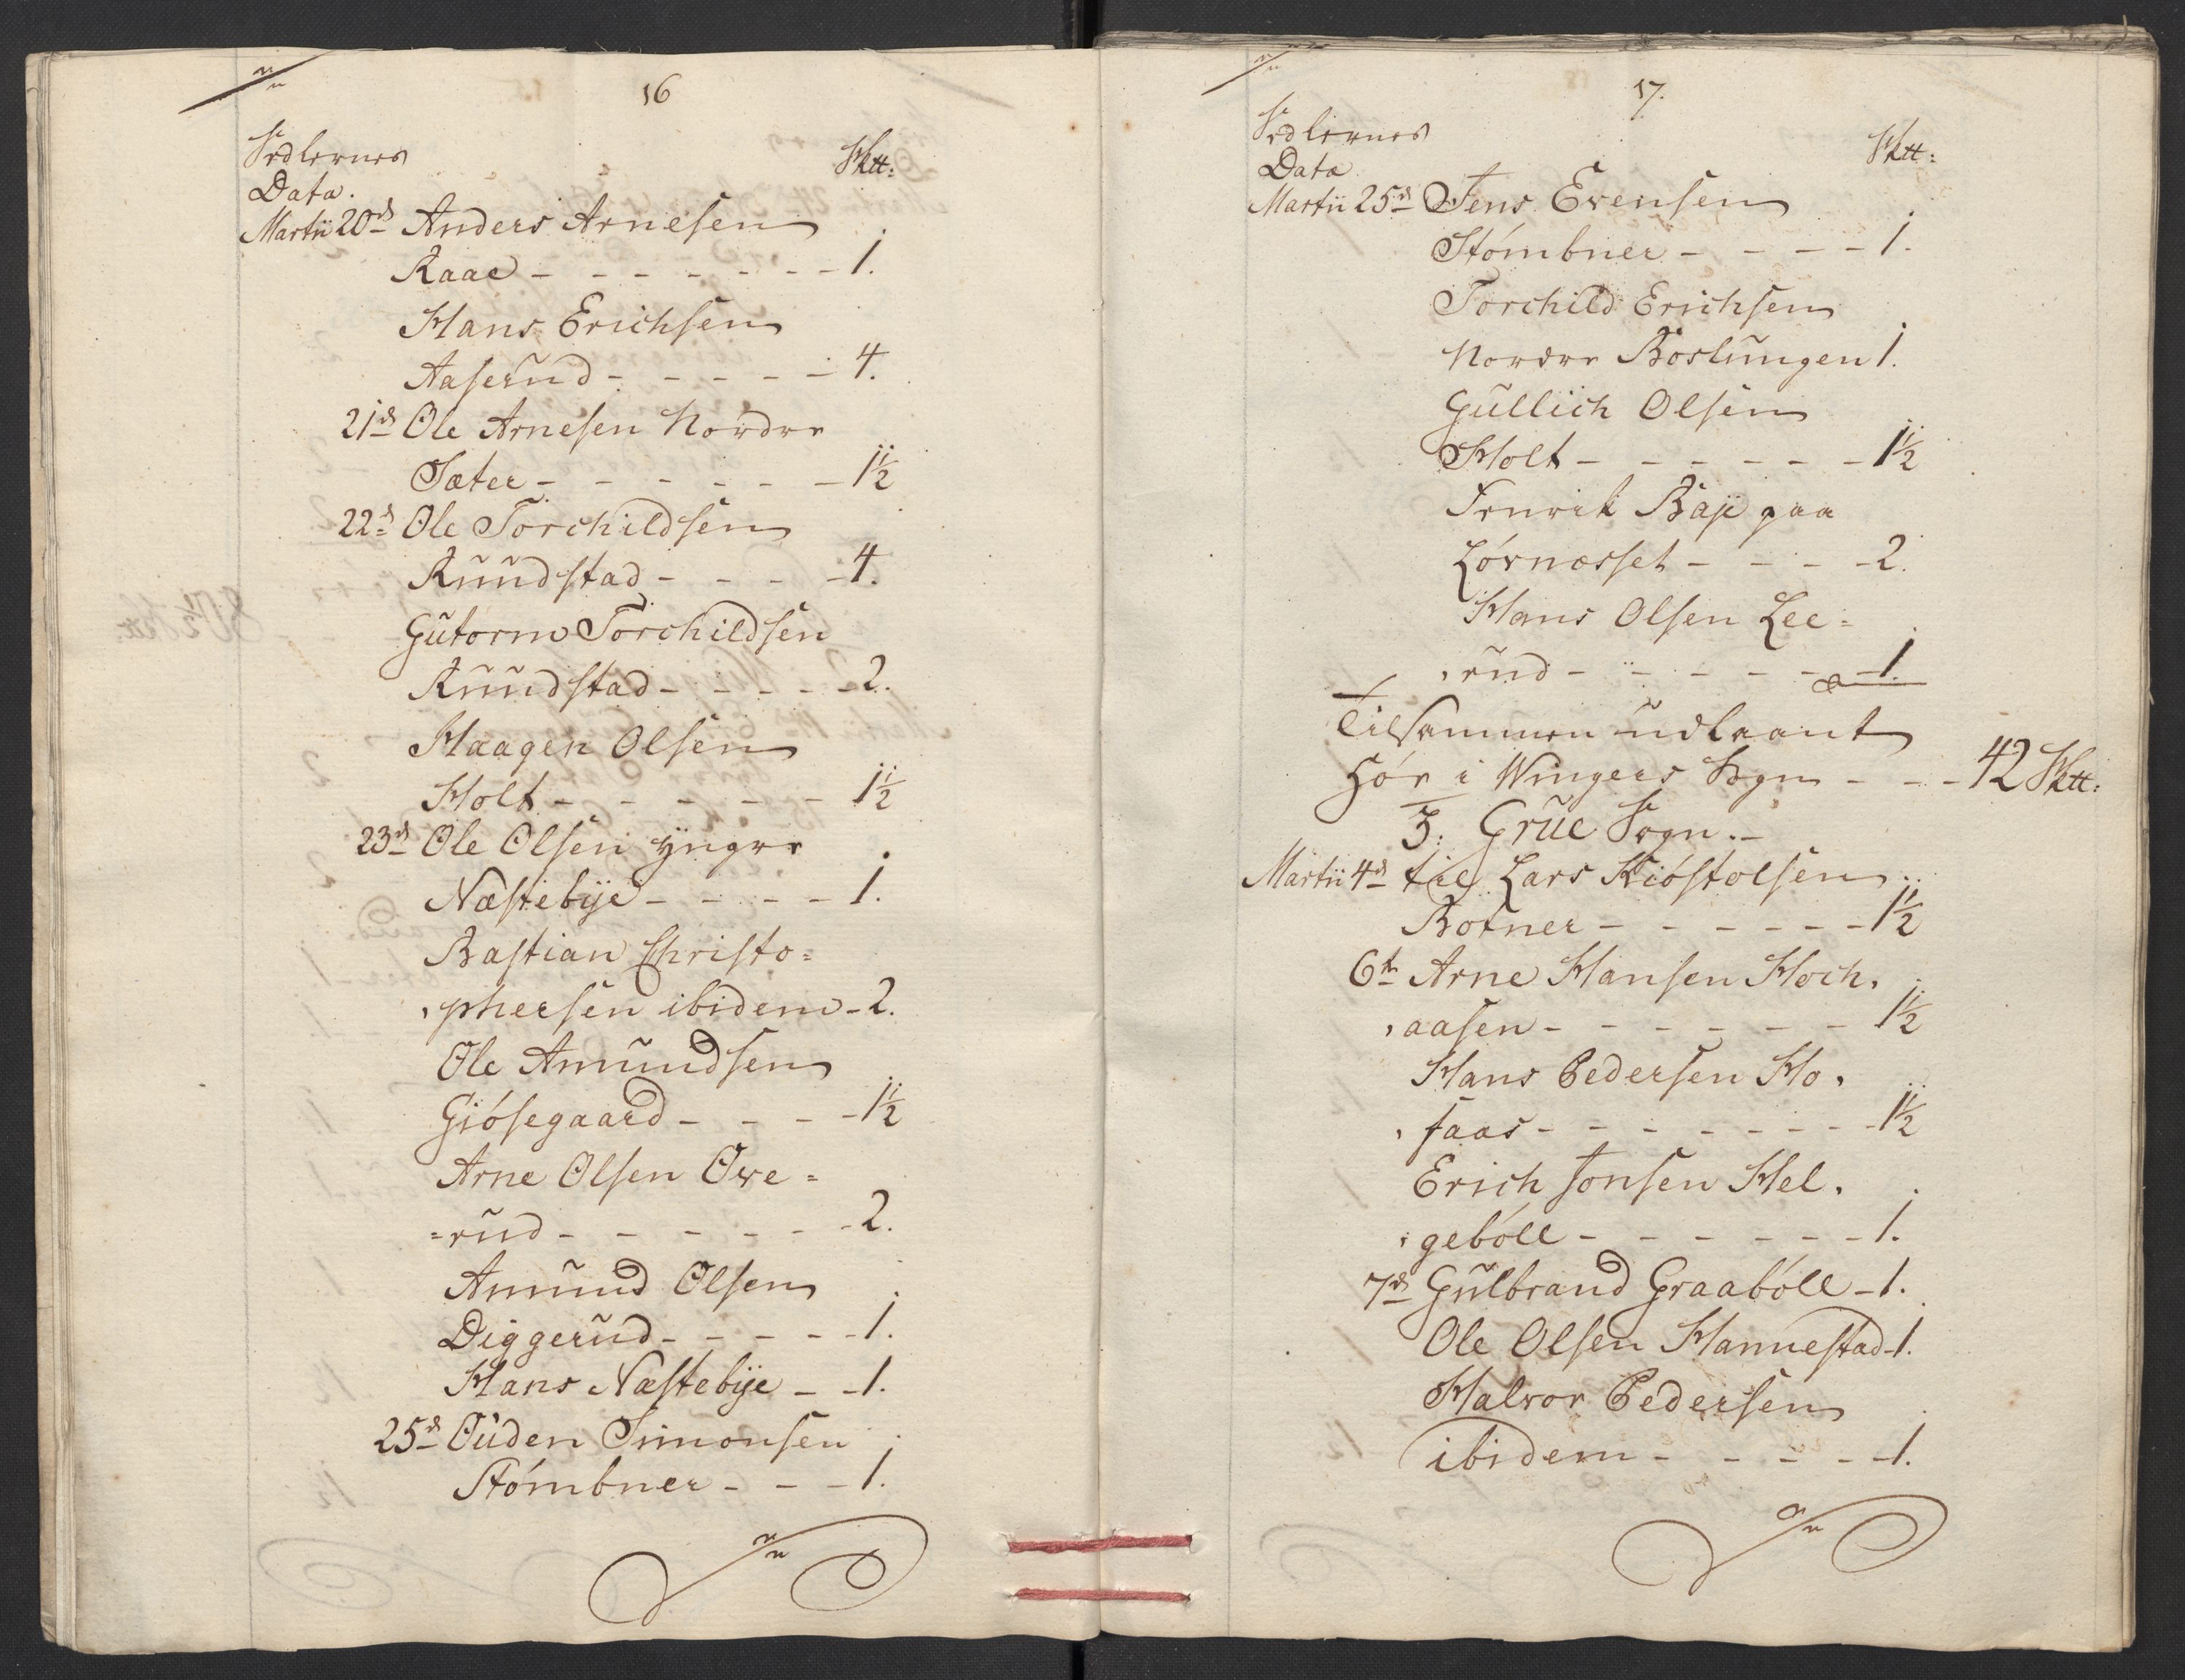 16
Sedlernes
Data.
Sktt:
Martii 20de Anders Arnesen
Raae - - - - - - - 1.
Hans Erichsen
Aaserud - - - - - 4.
21de Ole Arnesen Nordre
Sæter - - - - - - 1½
22de Ole Torchildsen
Ruudstad - - - - 4.
Gutorm Torchildsen
Ruudstad - - - - - 2.
Haagen Olsen
Holt - - - - - - 1½
23de Ole Olsen yngre
Næstebÿe - - - - 1.
Bastian Christo=
phersen ibidem - 2.
Ole Amundsen
Giósegaard - - - - 1½
Arne Olsen Owe=
=rud - - - - - - 2.
Amund Olsen
Diggerud - - - - - 1.
Hans Næstebÿe - - 1.
25de Ouden Simonsen
Stómbner - - - 1.
17.
Sedlernes
Data
Sktt:
Martii 25de Jens Evensen
Stómbner - - - - 1.
Torchild Erichsen
Nordre Boslungen 1.
Gullich Olsen
Holt - - - - - - 1½
Henrik Baÿe paa
Lóvnæsset - - - - 2.
Hans Olsen Lee=
rud - - - - - - 1.
Tilsammen udlaant
Hór i Wingers Sogn - - - 42 Sktt:
3: Grue Sogn.-
Martii 4de til Lars Kióstolsen
Botner - - - - - - 1½
6te Arne Hansen Hoch,
,aasen - - - - - - 1½
Hans Pedersen Ho,
,faas - - - - - - - - 1½
Erich Jonsen Hel,
,gebóll - - - - - - 1.
7de Gulbrand Graabóll - 1.
Ole Olsen Hannestad - 1.
Halvor Pedersen
ibidem - - - - - 1.